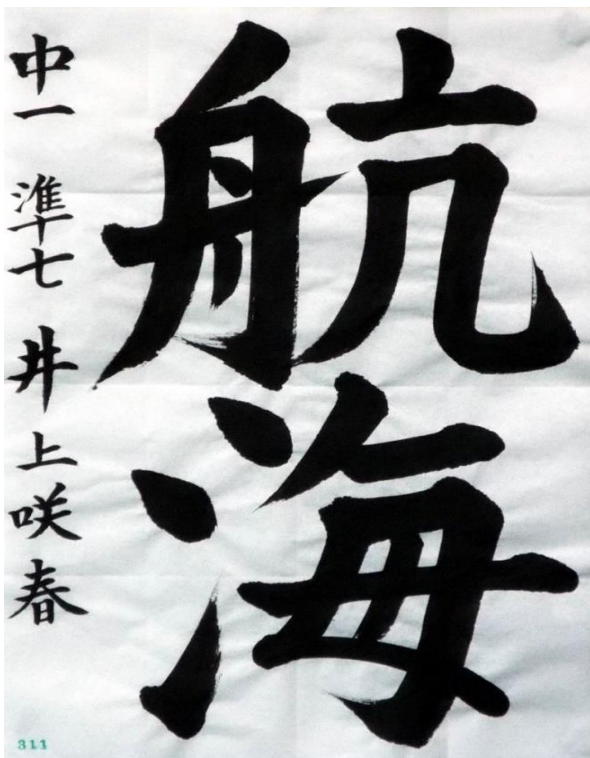 航海
中一 準七 井上咲春
311